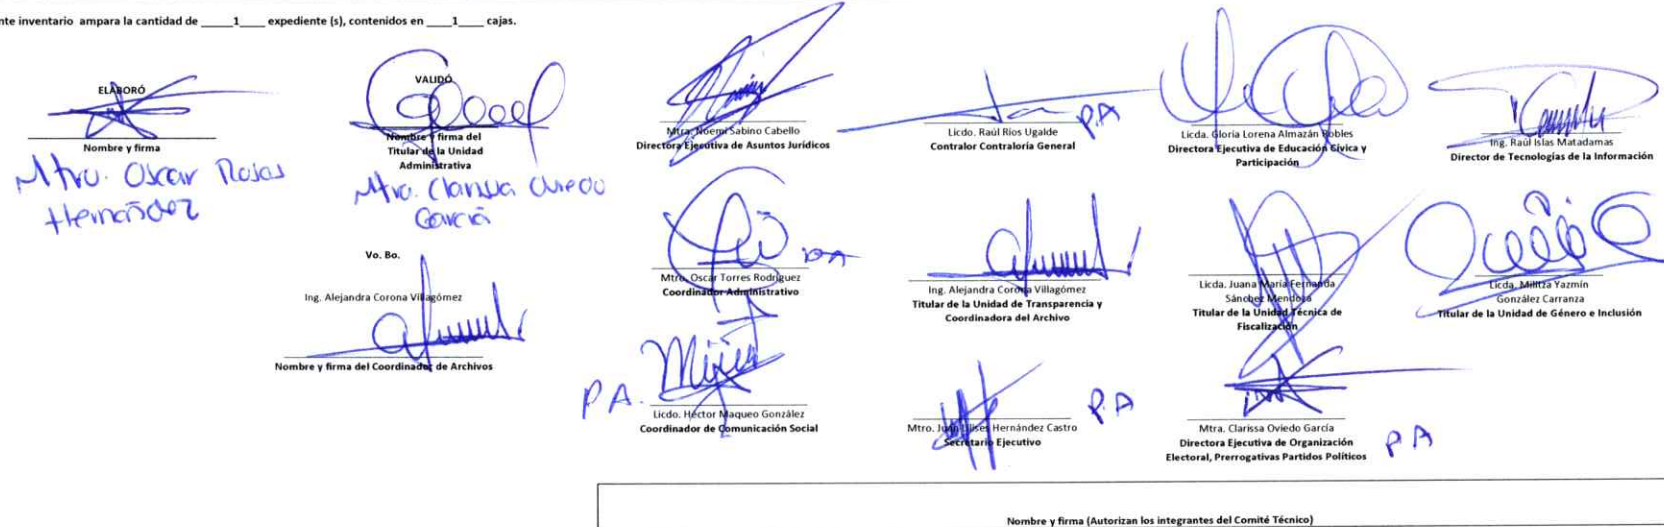 nte inventario ampara la cantidad de _____1____ expediente (s), contenidos en ____1____ cajas.
ELABORÓ
Nombre y firma
Mtro. Oscar Rosas
Hernández
VALIDÓ
Nombre y firma del
Titular de la Unidad
Administrativa
Mtra. Clarissa Oviedo
García
Vo. Bo.
Ing. Alejandra Corona Villagómez
Nombre y firma del Coordinador de Archivos
Mtra. Noemí Sabino Cabello
Directora Ejecutiva de Asuntos Jurídicos
Licdo. Raúl Ríos Ugalde
Contralor Contraloría General
P.A
Licda. Gloria Lorena Almazán Robles
Directora Ejecutiva de Educación Cívica y
Participación
Ing. Raúl Islas Matadamas
Director de Tecnologías de la Información
Mtro. Oscar Torres Rodríguez
Coordinador Administrativo
Ing. Alejandra Corona Villagómez
Titular de la Unidad de Transparencia y
Coordinadora del Archivo
Licda. Juana María Fernanda
Sánchez Mendoza
Titular de la Unidad Técnica de
Fiscalización
Licda. Militza Yazmín
González Carranza
Titular de la Unidad de Género e Inclusión
P.A.
Licdo. Héctor Maqueo González
Coordinador de Comunicación Social
Mtro. Juan Ulises Hernández Castro
Secretario Ejecutivo
P.A
Mtra. Clarissa Oviedo García
Directora Ejecutiva de Organización
Electoral, Prerrogativas Partidos Políticos
P A
Nombre y firma (Autorizan los integrantes del Comité Técnico)